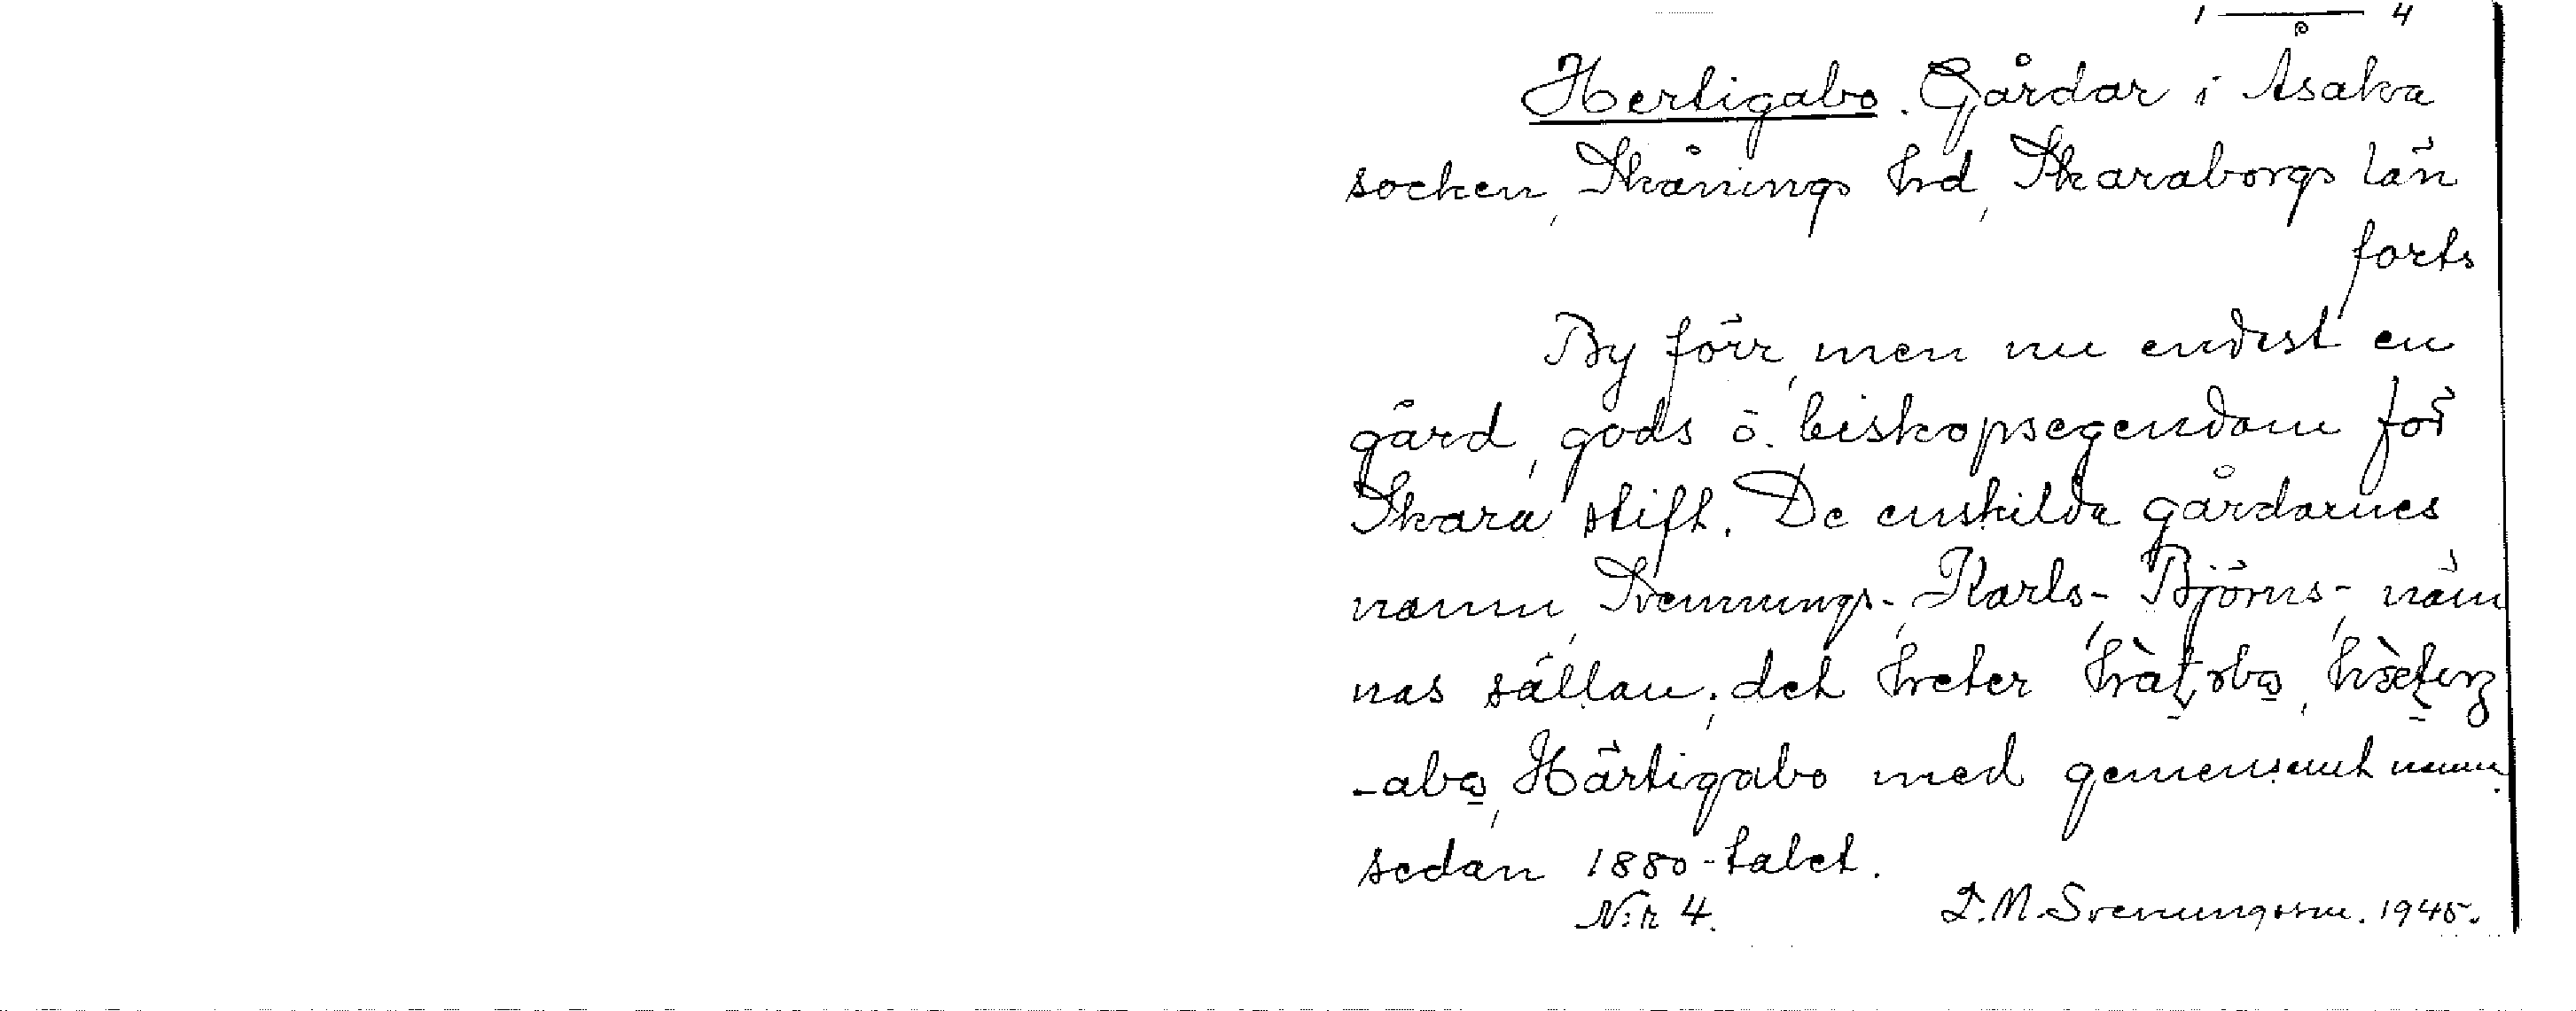 1 — 4
Hertigabo. Gårdar i Åsaka
socken, Skånings hd, Skaraborgs län
forts
By förr, men nu endast en
gård, gods o. biskopsegendom för
Skara stift. De enskilda gårdarnes
namn, Svennungs-, Karls-, Björns-, näm
nas sällan; det heter
-abo, Härtigabo med gemensamt namn
sedan 1880-talet.
N:r 4. L.M. Svenungsson. 1945.